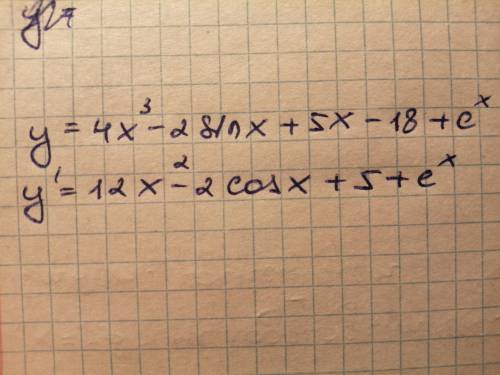 y = 4x³ - 2 sin x + 5x - 18 + eˣ
y' = 12x² - 2 cos x + 5 + eˣ